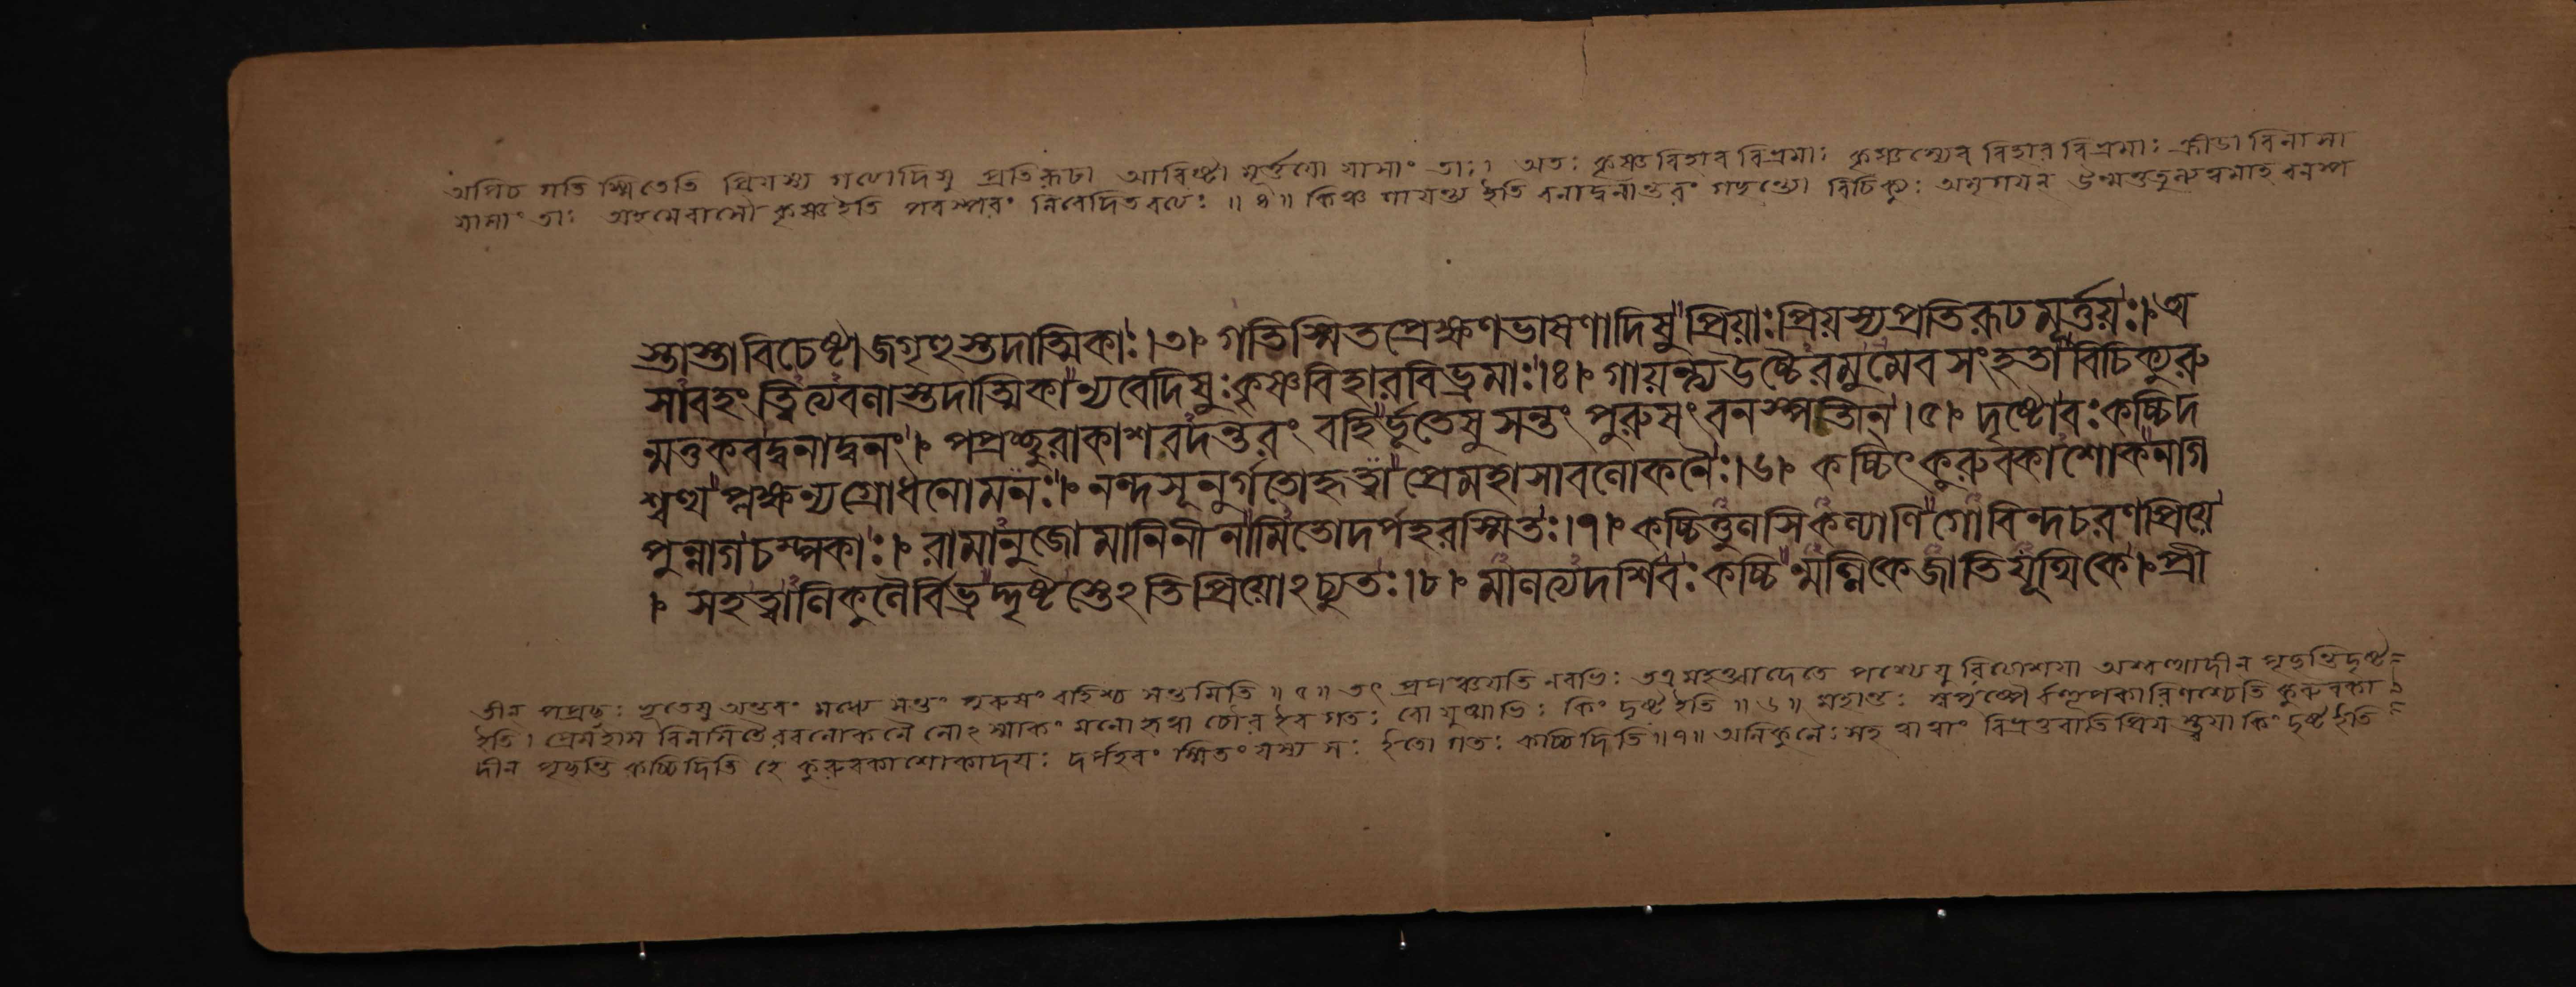 অপিচ গতিস্মিতেতি প্রিয়স্য গত্যাদিষু প্রতিরূঢা আবিষ্টা মূর্ত্তয়ো যাসাং তাঃ। অতঃ কৃষ্ণবিহারবিভ্রমাঃ কৃষ্ণস্যেব বিহারবিভ্রমাঃ ক্রীডাবিলাসা
যাসাং তাঃ অহমেবাসৌ কৃষ্ণইতি পরস্পরং নিবেদিতবত্যঃ ॥ ৪ ॥ কিঞ্চ গায়ন্ত্য ইতি বনাদ্বনান্তরং গচ্ছন্ত্যো বিচিক্যুঃ অমৃগয়ন্ উন্মত্ততুল্যত্বমাহ বনস্প
স্তাস্তাবিচেষ্টাজগৃহুস্তদাত্মিকাঃ।৩। গতিস্মিতপ্রেক্ষণভাষণাদিষুপ্রিয়াঃপ্রিয়স্যপ্রতিরূঢমূর্ত্তয়ঃ।অ
সাবহংত্বিত্যবলাস্তদাত্মিকান্যবেদিষুঃকৃষ্ণবিহারবিভ্রমাঃ।৪। গায়ন্ত্যউচ্চৈরমুমেবসংহতাবিচিক্যুরু
ন্মত্তকবদ্বনাদ্বনং। পপ্রচ্ছুরাকাশবদন্তরং বহির্ভূতেষুসন্তং পুরুষংবনস্পতীন্।৫। দৃষ্টোবঃকচ্চিদ
শ্বত্থপ্লক্ষন্যগ্রোধনোমনঃ। নন্দসূনুর্গতোহৃত্বাপ্রেমহাসাবলোকনৈঃ।৬। কচ্চিৎকুরুবকাশোকনাগ
পুন্নাগচম্পকাঃ। রামানুজোমানিনীনামিতোদর্পহরস্মিতঃ।৭। কচ্চিত্তুলসিকল্যাণিগোবিন্দচরণপ্রিয়ে
। সহত্বালিকুলৈর্বিভ্রদ্দৃষ্টস্তেঽতিপ্রিয়োঽচ্যুতঃ।৮। মালত্যদর্শিবঃকচ্চিন্মল্লিকেজাতিযূথিকে।প্রী
তীন্ পপ্রচ্ছুঃ ভূতেষু অন্তরং মধ্যে সন্তং পুরুষং বহিশ্চ সন্তমিতি ॥ ৫ ॥ তৎ প্রপঞ্চয়তি নবভিঃ তত্র মহত্ত্বাদেতে পশ্যেয়ুরিত্যাশয়া অশ্বত্থাদীন্ পৃচ্ছন্তি দৃষ্ট
ইতি। প্রেমহাস বিলসিতৈরবলোকনৈ র্নোঽস্মাকং মনো হৃত্বা চোর ইব গতঃ বো যুষ্মাভিঃ কিং দৃষ্ট ইতি ॥ ৬ ॥ মহান্তঃ স্বপুষ্পৈ র্বহূপকারিণশ্চেতি কুরুবকা
দীন্ পৃচ্ছন্তি কচ্চিদিতি হে কুরুবকাশোকাদয়ঃ দর্পহরং স্মিতং যস্য সঃ ইতো গতঃ কচ্চিদিতি ॥ ৭ ॥ অলিকুলৈঃ সহ ত্বা ত্বাং বিভ্রত্তবাতিপ্রিয়স্ত্বয়া কিং দৃষ্ট ইতি